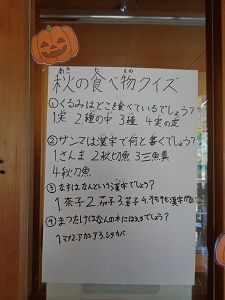 あき た もの
秋の食べ物クイズ
①くるみはどこを食べているでしょう?
1実 2種の中 3種 4実の芝
②サンマは漢字で何と書くでしょう?
1.さんま 2秋切魚 3三魚算
4秋刀魚
③なすはなんという漢字でしょう?
1.茶子 2茄子 3.菓子 4.そもそも漢字がない
④まつたけはなんの木にはえるでしょう?
1マツ2.アカシア3.シラカバ